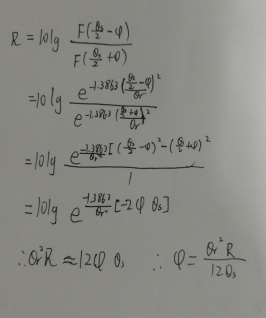 R = 10lg F(θs/2 - φ) / F(θs/2 + φ)
= 10lg e^(-1.3863((θs/2 - φ)/θr)^2) / e^(-1.3863((θs/2 + φ)/θr)^2)
= 10lg e^(-1.3863/θr^2 [(θs/2 - φ)^2 - (θs/2 + φ)^2]) / 1
= 10lg e^(-1.3863/θr^2 [-2φ θs])
∴ θr^2 R ≈ 12φ θs ∴ φ = θr^2 R / 12θs